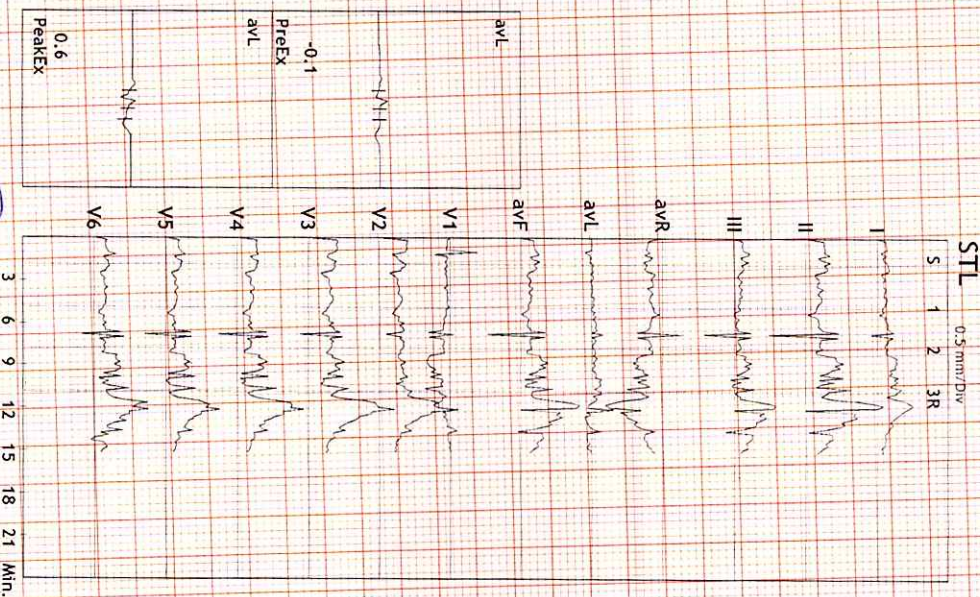 STL 0.5 mm/Div
S 1 2 3R
I
II
III
avR
avL
avF
V1
V2
V3
V4
V5
V6
3 6 9 12 15 18 21 Min.
avL
-0.1
PreEx
avL
0.6
PeakEx